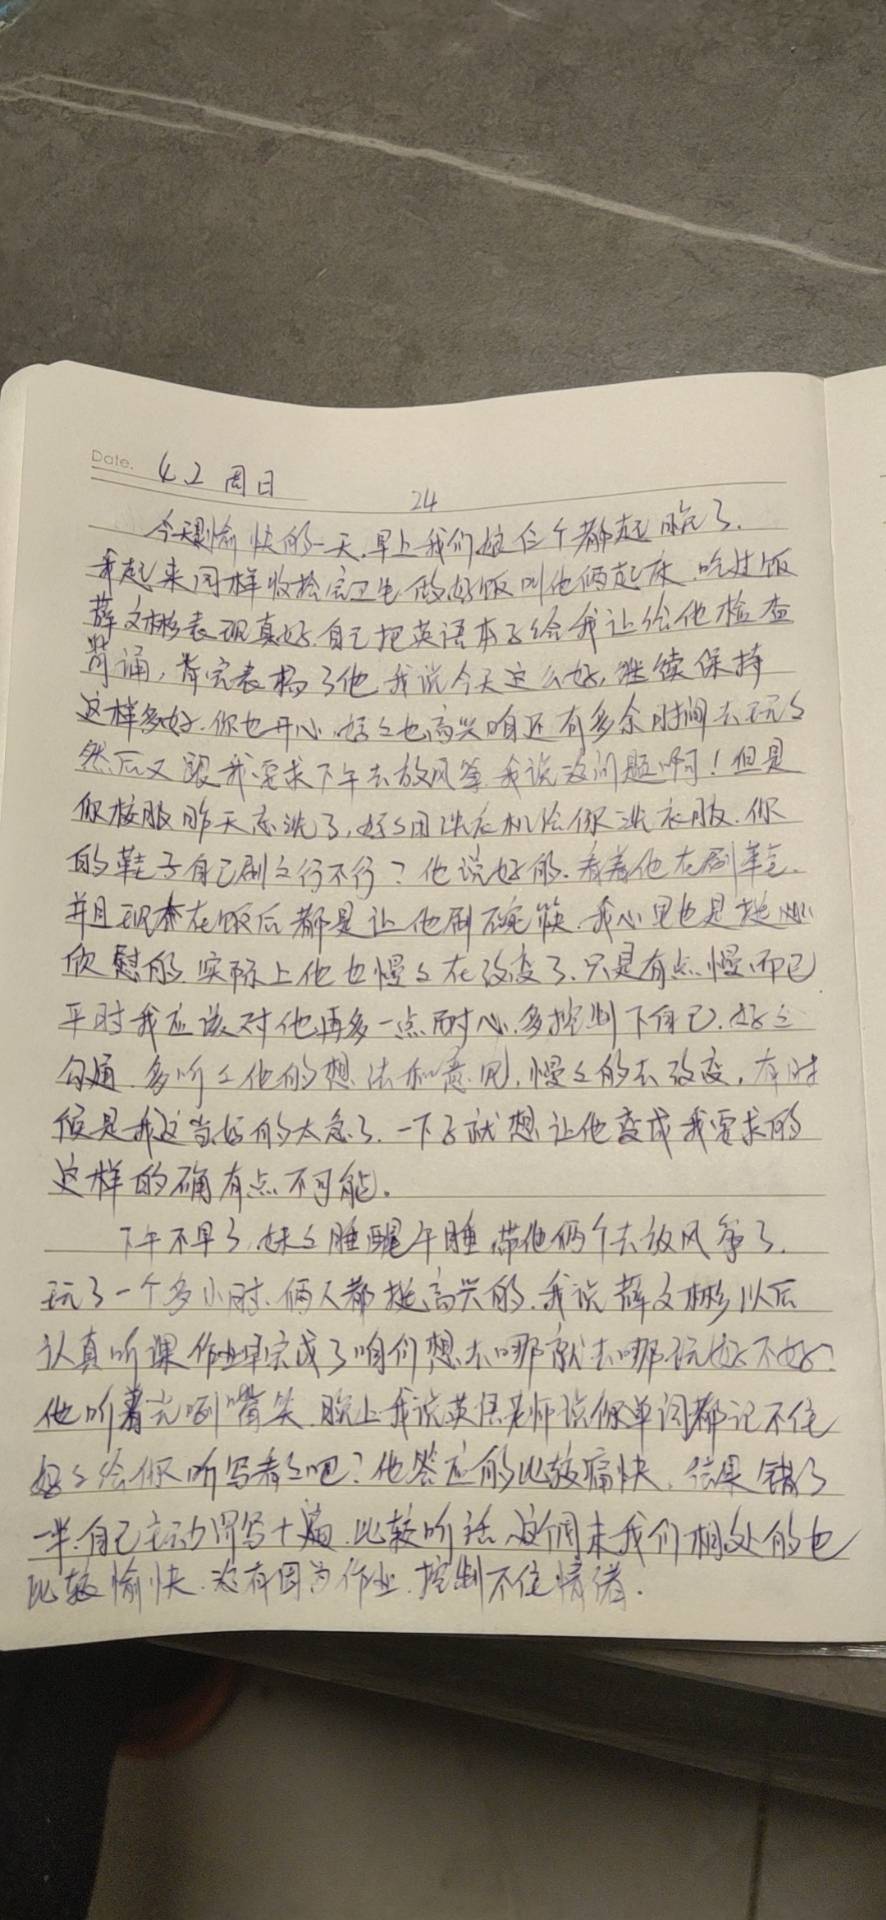 Date. 4.2 周日
24
今天是愉快的一天.早上我们娘仨个都起晚了.
我起来同样收拾完卫生做好饭叫他俩起床.吃过饭
薛文彬表现真好.自己把英语本子给我让给他检查
背诵,背完表扬了他,我说今天这么好,继续保持
这样多好.你也开心.妈々也高兴咱还有多余时间去玩々
然后又跟我要求下午去放风筝.我说没问题啊!但是
你校服昨天忘洗了,妈々用洗衣机给你洗衣服.你
的鞋子自己刷々行不行?他说好的.看着他在刷鞋.
并且现在饭后都是让他刷碗筷.我心里也是挺
欣慰的.实际上他也慢々在改变了.只是有点慢而已
平时我应该对他再多一点耐心.多控制下自己.好々
勾通.多听々他的想法和意见,慢々的去改变,有时
候是我这当妈的太急了.一下子就想让他变成我要求的
这样的确有点不可能.
下午不早了.妹々睡醒午睡,带他俩个去放风筝了.
玩了一个多小时.俩人都挺高兴的.我说薛文彬以后
认真听课作业早完成了咱们想去哪就去哪玩好不好?
他听着光咧嘴笑.晚上我说英语老师说你单词都记不住
妈々给你听写看々吧?他答应的比较痛快.结果错了
一半.自己主动罚写十遍.比较听话.这个周末我们相处的也
比较愉快.没有因为作业.控制不住情绪.